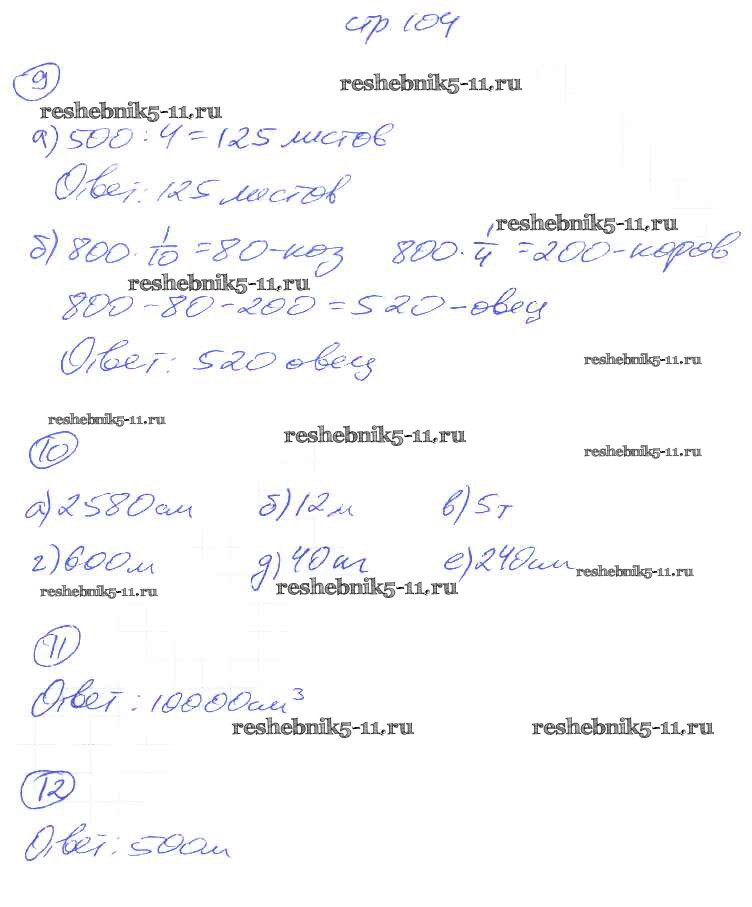 стр. 104
9
reshebnik5-11.ru
reshebnik5-11.ru
а) 500 : 4 = 125 листов
Ответ: 125 листов
reshebnik5-11.ru
б) 800 · 1/10 = 80 - коз 800 · 1/4 = 200 - коров
reshebnik5-11.ru
800 - 80 - 200 = 520 - овец
Ответ: 520 овец
reshebnik5-11.ru
reshebnik5-11.ru
10
reshebnik5-11.ru
reshebnik5-11.ru
а) 2580 см б) 12 м в) 5 т
г) 600 м д) 40 кг е) 240 см
reshebnik5-11.ru
reshebnik5-11.ru
reshebnik5-11.ru
11
Ответ: 10000 см³
reshebnik5-11.ru reshebnik5-11.ru
12
Ответ: 50 см